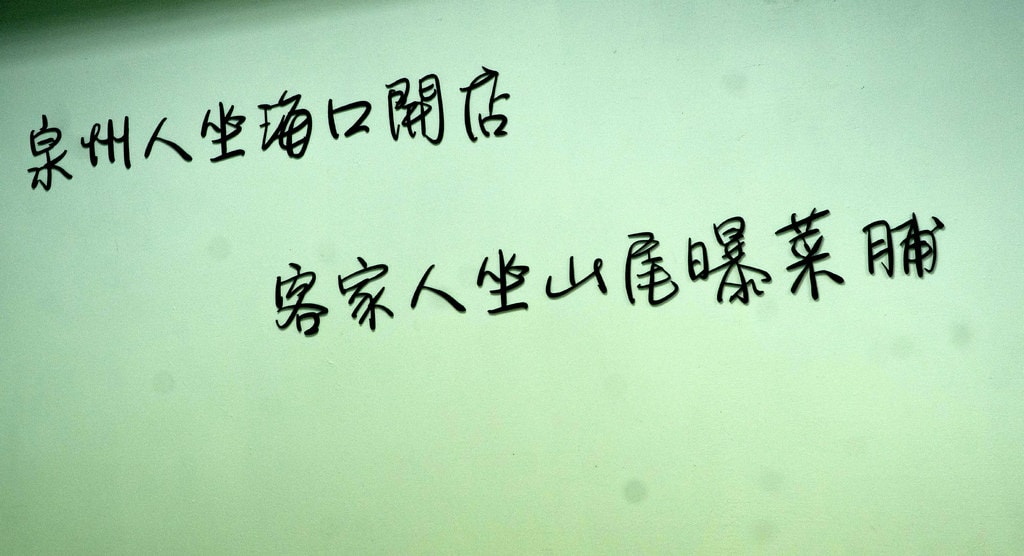 泉州人坐海口開店
客家人坐山尾曝菜脯